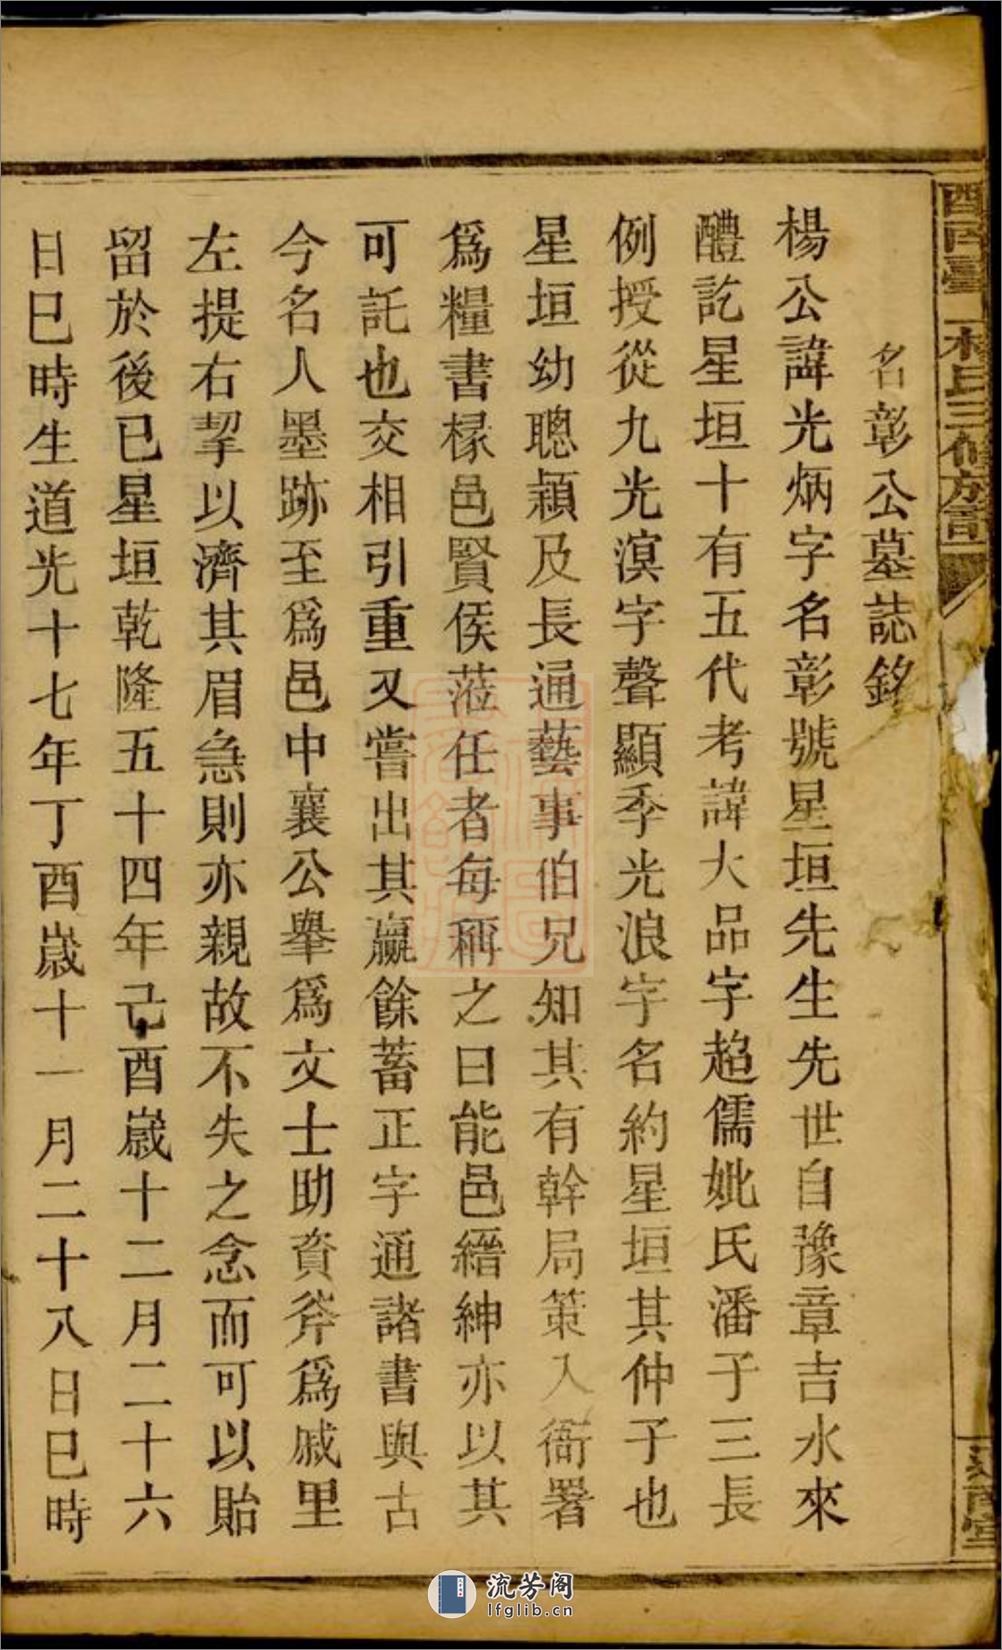 名彰公墓誌銘
楊公諱光炳字名彰號星垣先生先世自豫章吉水來
醴訖星垣十有五代考諱大品字超儒妣氏潘子三長
例授從九光溟字聲顯季光浪字名約星垣其仲子也
星垣幼聰穎及長通藝事伯兄知其有幹局策入衙署
爲糧書椽邑賢侯蒞任者每稱之曰能邑縉紳亦以其
可託也交相引重又嘗出其贏餘蓄正字通諸書與古
今名人墨跡至爲邑中襄公舉爲文士助資斧爲戚里
左提右挈以濟其眉急則亦親故不失之念而可以貽
留於後已星垣乾隆五十四年己酉歲十二月二十六
日巳時生道光十七年丁酉歲十一月二十八日巳時
楊氏三修族譜
流芳阁
lfglib.cn